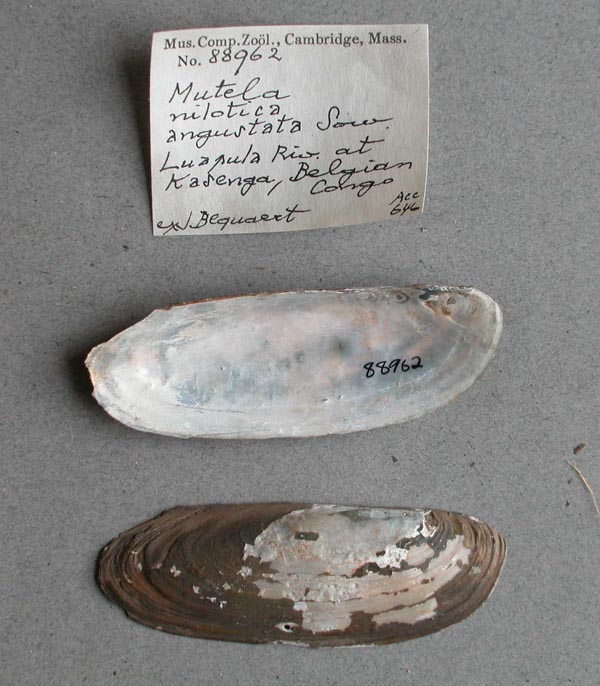 Mus.Comp.Zoöl., Cambridge, Mass.
No. 88962
Mutela
nilotica
angustata Sow.
Luapula Riv. at
Kasenga, Belgian
Congo
ex J. Bequaert
Acc
646
88962